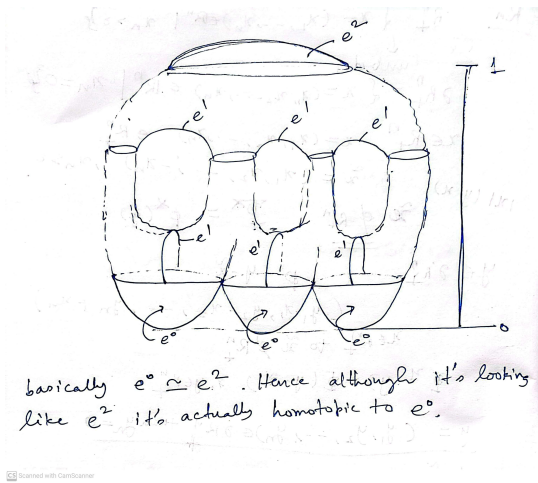 e²
1
e¹
e¹
e¹
e¹
e¹
e¹
e⁰
e⁰
e⁰
0
basically e⁰ ≃ e². Hence although it's looking
like e² it's actually homotopic to e⁰.
CS Scanned with CamScanner